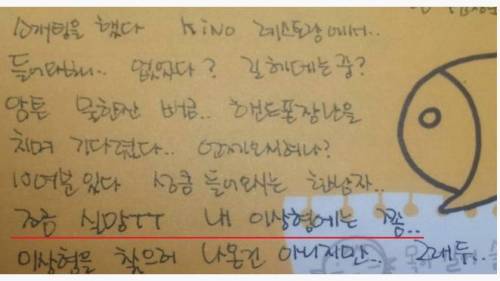 소개팅을 했다 KINO 레스토랑에서..
들어와보니.. 없었다? 길 헤메는중?
암튼 핸드폰장난을
치며 기다렸다.. 언제오시려나?
10여분 있다 성큼 들어오시는 한남자..
조금 실망ㅜㅜ 내 이상형에는 쫌..
이상형을 찾으러 나온건 아니지만.. 그래두..